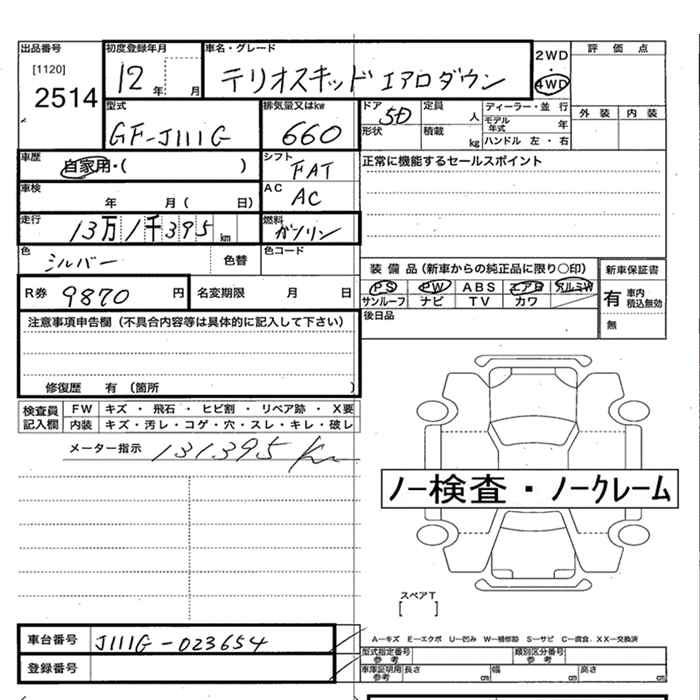 出品番号 初度登録年月 車名・グレード 2WD 評価点
[1120] 12年 月 テリオスキッド エアロダウン ・
2514 4WD
型式 排気量又はkw ドア 定員 ディーラー・並行 外装 内装
GF-J111G 660 5D 人 モデル年式 年
形状 積載 kg ハンドル 左・右
車歴 自家用・( ) シフト FAT 正常に機能するセールスポイント
車検 年 月( 日) AC AC
走行 13万1千395km 燃料 ガソリン
色 シルバー 色替 色コード 装備品(新車からの純正品に限り○印) 新車保証書
R券 9870円 名変期限 月 日 PS PW ABS エアB アルミW 有 車内 積込無効
サンルーフ ナビ TV カワ
注意事項申告欄(不具合内容等は具体的に記入して下さい) 後日品 無
修復歴 有 (箇所 )
検査員 FW キズ ・ 飛石 ・ ヒビ割 ・ リペア跡 ・ X要
記入欄 内装 キズ・汚レ・コゲ・穴・スレ・キレ・破レ
メーター指示 131395 Km
ノー検査・ノークレーム
スペアT
[ ]
車台番号 J111G-023654 A—キズ E—エクボ U—凹み W—補修跡 S—サビ C—腐食、XX—交換済
登録番号 型式指定番号 参考 類別区分番号 参考
車庫証明用 参考 長さ cm 幅 cm 高さ cm